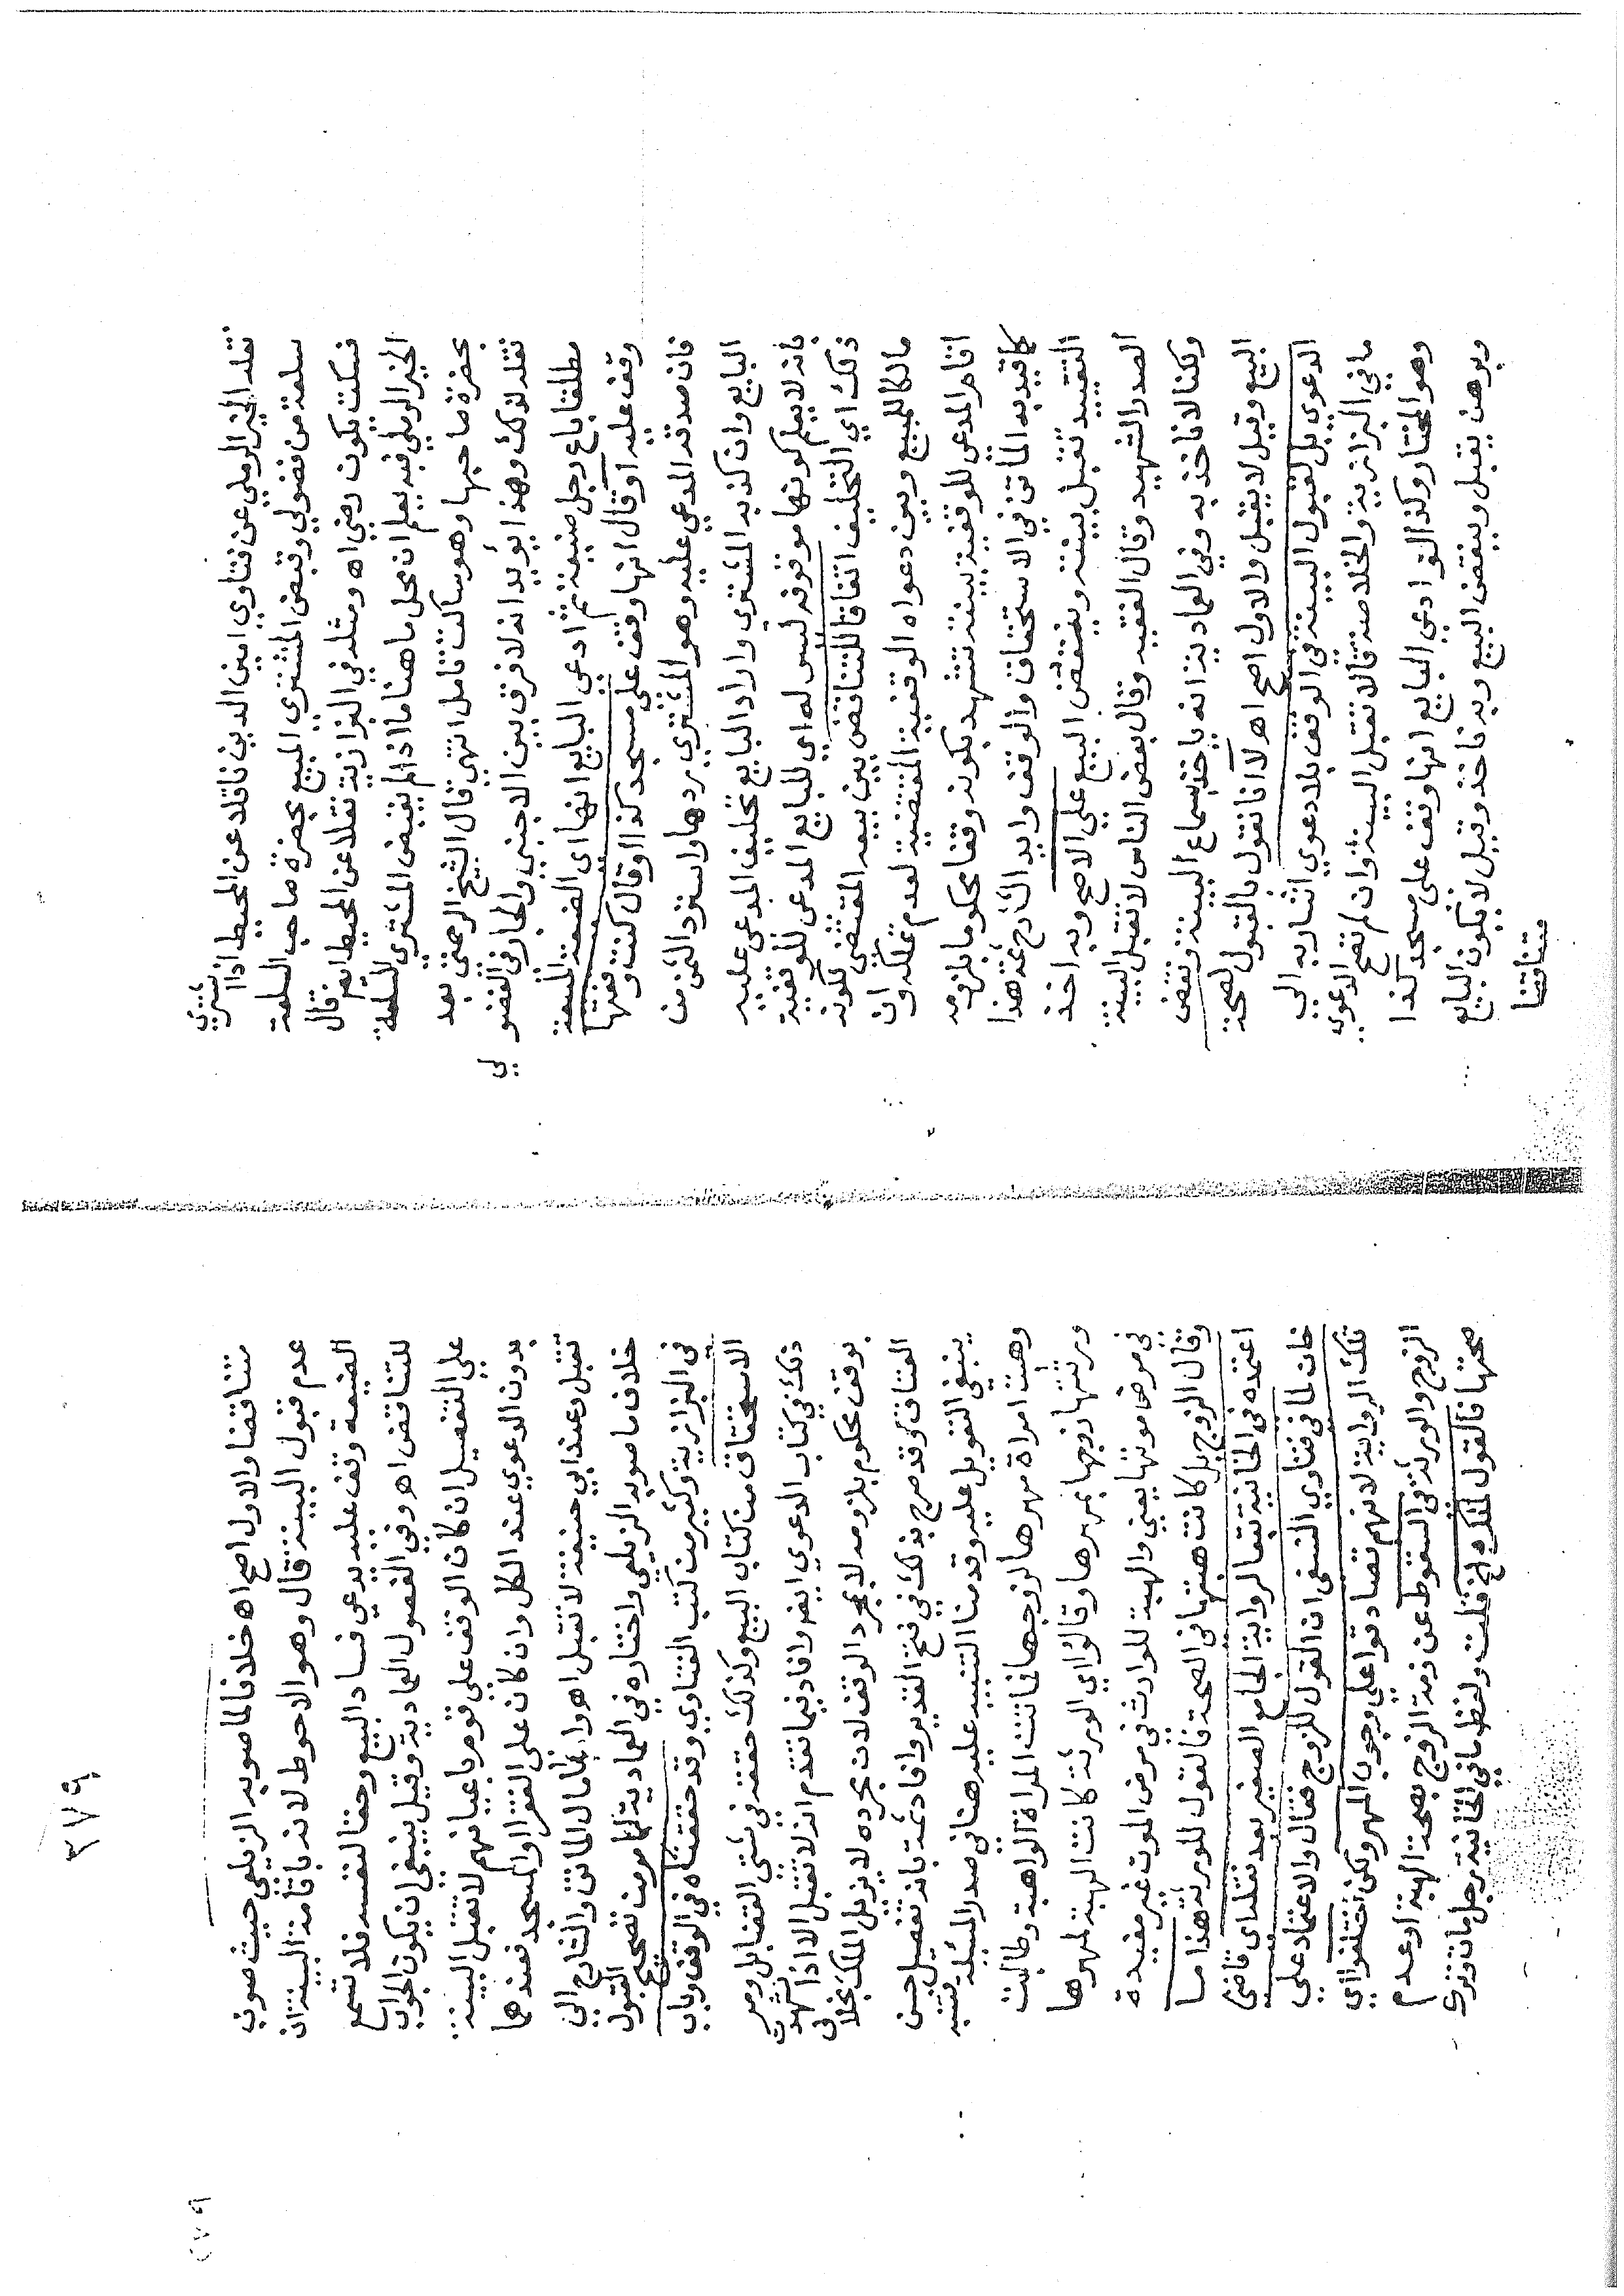 نقله الخير الرملي عن فتاوي امين الدين ناقلا عن المحيط اذا اشتري
سلعة من فضولي وقبض المشتري المبيع بحضرة صاحب السلعة
فسكت يكون رضي اه ومثله في البزازية نقلا عن المحيط ايضا قال
الخير الرملي فيه يعلم ان محل ما هنا ما اذا لم يقبض المشتري السلعة
بحضرة صاحبها وهو ساكت تامل انتهي قال الشيخ الرحمتي بعد
نقله لذلك وهذا يؤيد انه لا فرق بين الاجنبي والجار في الفضولي
مطلقا باع رجل ضيعة ثم ادعي البايع انها اي الضيعة المبيعة
وقف عليه او قال انها وقف علي مسجد كذا او قال كنت وقفتها
فان صدقه المدعي عليه وهو المشتري ردها واسترد الثمن من
البايع وان كذبه المشتري واراد البايع تحليف المدعي عليه
بانه لا يعلم كونها موقوفه ليس له اي للبايع المدعي للوقفية
ذلك اي التحليف اتفاقا للتناقض بين بيعه المقتضي لكونه
مالكا للمبيع وبين دعواه الوقفية المقتضية لعدم تملكه وان
اقام المدعي للوقفية بينة تشهد بكونه وقفا محكوما بلزومه
كما قيد به الماتن في الاستحقاق والوقف وايد الشارح ثمة هذا
التقييد تقبل بينته وينقض البيع علي الاصح وبه اخذ
الصدر الشهيد وقال الفقيه وقال بعض الناس لا تقبل البينة
ولكنا لا ناخذ به وفي العمادية انه ياخذ بسماع البينة ونقض
البيع وقيل لا يقبل والاول اصح اه لا انا نقول بالقبول لصحة
الدعوي بل لقبول البينة في الوقف بلا دعوي اشار به الي
ما في البزازية والخلاصة قالا تقبل البينة وان لم تصح الدعوي
وهو المختار وكذا لو ادعي البايع انها وقف علي مسجد كذا
وبرهن يقبل وينقض البيع وبه ناخذ وقيل لا يكون البايع
متناقضا
٣٧٩
متناقضا والاول اصح اه خلافا لما صوبه الزيلعي حيث صوب
عدم قبول البينة قال وهو الاحوط لانه باقامة البينة ان
الضيعة وقف عليه يدعي فساد البيع وحقا لنفسه فلا تسمع
للتناقض اه وفي الفصول العمادية وقيل ينبغي ان يكون الجواب
علي التفصيل ان كان الوقف علي قوم باعيانهم لا تقبل البينة
بدون الدعوي عند الكل وان كان علي الفقرا او المسجد فعندهما
تقبل وعند ابي حنيفة لا تقبل اه وانما مال الماتن والشارح الي
خلاف ما صوبه الزيلعي واختاره في العمادية لما مر من تصحيح القبول
في البزازية وكثير من كتب الفتاوي وقد حققناه في الوقف وباب
الاستحقاق من كتاب البيع وكذلك حققه في شتي القضا بل ومر
ذلك في كتاب الدعوي ايضا وافاد فيما تقدم انه لا تقبل الا اذا شهدت
بوقف محكوم بلزومه لا بمجرد الوقف لان مجرده لا يزيل الملك بخلاف
العتاق وقد صرح بذلك في فتح القدير وافاد ثمة بانه تفصيل حسن
ينبغي التعويل عليه وقدمنا التنبيه عليه هنا في صدر المسئلة فتنبه
وهبت امراة مهرها لزوجها فماتت المراة الواهبة وطالبت
ورثتها زوجها بمهرها وقالوا اي الورثة كانت الهبة لمهرها
في مرض موتها يعني والهبة للوارث في مرض الموت غير مفيدة
وقال الزوج بل كانت هبتها في الصحة فالقول للورثة هذا ما
اعتمده في الخانية تبعا لرواية الجامع الصغير بعد نقله اي قاضي
خان لما في فتاوي النسفي ان القول للزوج فقال والاعتماد علي
تلك الرواية لانهم تصادقوا علي وجوب المهر ولكن اختلفوا اي
الزوج والورثة في السقوط عن ذمة الزوج بصحة الهبة او عدم
صحتها فالقول لمنكره الخ قلت ولفظ ما في الخانية رجل مات وترك